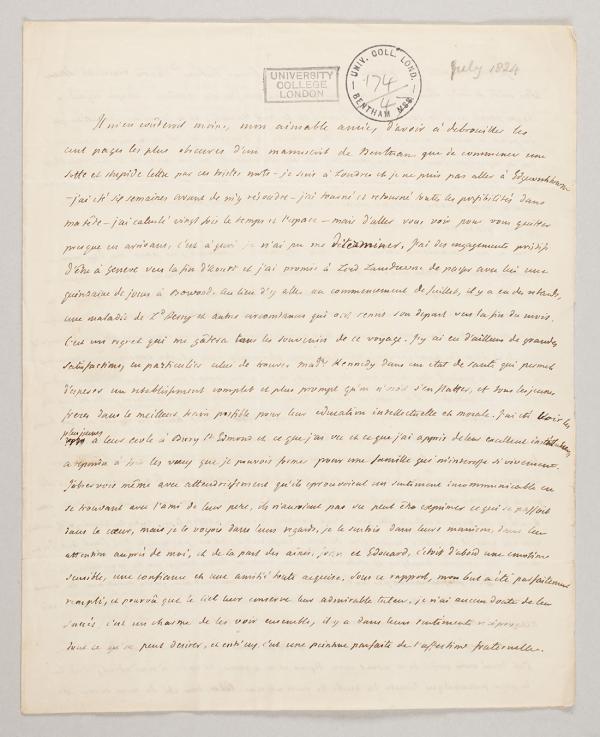 UNIVERSITY
COLLEGE
LONDON
UNIV. COLL. LOND.
174
4
BENTHAM MSS.
July 1824
Il m'en couteroit moins, mon aimable amie, d'avoir à debrouiller les
cent pages les plus obscures d'un manuscrit de Bentham que de commencer une
sotte et stupide lettre par ces tristes mots – je suis à Londres et je ne puis pas aller à
– j'ai été six semaines avant de m'y resoudre – j'ai tourné et retourné toutes les possibilités dans
ma tête – j'ai calculé vingt fois le temps et l'espace – mais d'aller vous voir pour vous quitter
presque en arrivant, c'est à quoi je n'ai pu me déterminer. J'ai des engagements positifs
d'être à Genève vers la fin d'Aoust et j'ai promis à Lord Lansdowne de passer avec lui une
quinzaine de jours à Bowood. Au lieu d'y aller au commencement de Juillet, il y a eu des retards,
une maladie de Ld Henry et autres circonstances qui ont remis son depart vers la fin du mois.
C'est un regret qui me gâtera tous les souvenirs de ce voyage. J'y ai eu d'ailleurs de grandes
satisfactions, en particulier celui de trouver made Kennedy dans un etat de santé qui permet
d'esperer un retablissement complet et plus prompt qu'on n'osoit s'en flatter, et tous les jeunes
freres dans le meilleur train possible pour leur education intellectuelle et morale. J'ai été voir les
plus jeunes
à leur ecole à Bury St Edmond et ce que j'ai vu et ce que j'ai appris de leur excellent
a repondu à tous les vœux que je pouvois former pour une famille qui m'interesse si vivement.
J'observois même avec attendrissement qu'ils eprouvoient un sentiment incommunicable en
se trouvant avec l'ami de leur pere, ils n'auroient pas su peut être exprimer ce qui se passoit
dans le cœur, mais je le voyois dans leurs regards, je le sentois dans leurs manieres, dans leur
attention auprès de moi, et de la part des ainés, et Edouard, c'étoit d'abord une emotion
sensible, une confiance et une amitié toute acquise. Sous ce rapport, mon but a été parfaitement
rempli, et pourvû que le ciel leur conserve leur admirable tuteur, je n'ai aucun doute de leur
succès, c'est un charme de les voir ensemble, il y a dans leurs sentiments
tout ce qu'on peut desirer, et c'est une peinture parfaite de l'affection fraternelle.